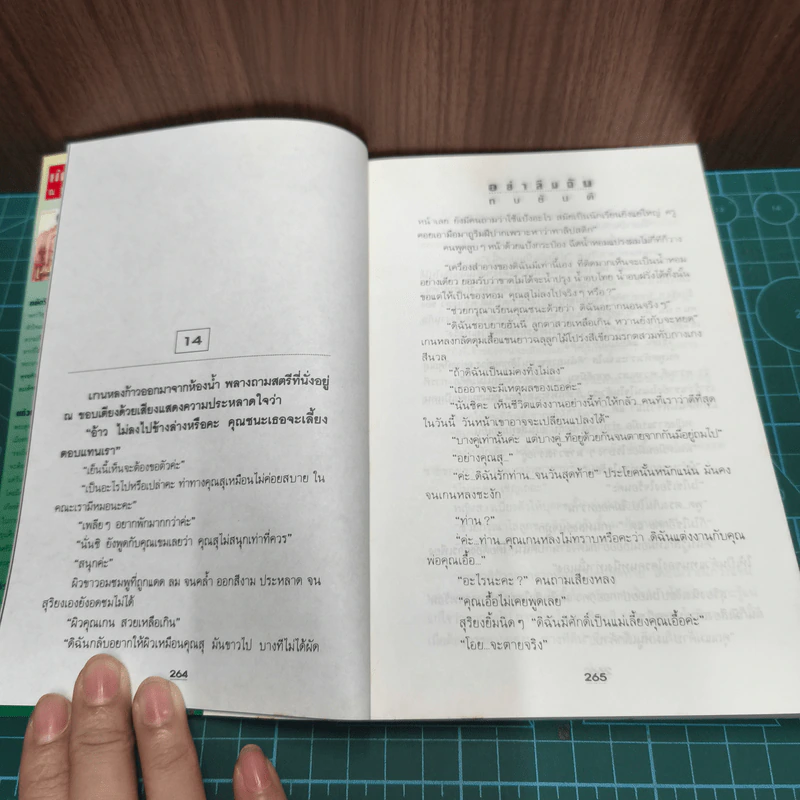 14
เกนหลงก้าวออกมาจากห้องน้ำ พลางถามสตรีที่นั่งอยู่
ณ ขอบเตียงด้วยเสียงแสดงความประหลาดใจว่า
“อ้าว ไม่ลงไปข้างล่างหรือคะ คุณชนะเธอจะเลี้ยง
ตอบแทนเรา”
“เย็นนี้เห็นจะต้องขอตัวค่ะ”
“เป็นอะไรไปหรือเปล่าคะ ท่าทางคุณสุเหมือนไม่ค่อยสบาย ใน
คณะเรามีหมอนะคะ”
“เพลียๆ อยากพักมากกว่าค่ะ”
“นั่นซิ ยังพูดกับคุณเขมเลยว่า คุณสุไม่สนุกเท่าที่ควร”
“สนุกค่ะ”
ผิวขาวอมชมพูที่ถูกแดด ลม จนคล้ำ ออกสีงาม ประหลาด จน
สุริยงเองยังอดชมไม่ได้
“ผิวคุณเกน สวยเหลือเกิน”
“ดิฉันกลับอยากให้ผิวเหมือนคุณสุ มันขาวไป บางทีไม่ได้ผัด
264
อย่าลืมฉัน
ทมยันตี
หน้าเลย ยังมีคนถามว่าใช้แป้งอะไร สมัยเป็นนักเรียนยิ่งแย่ใหญ่ ครู
คอยเอามือมาถูริมฝีปากเพราะหาว่าทาลิปสติก”
คนพูดลูบๆ หน้าด้วยแป้งกระป๋อง ฉีดน้ำหอมแปรงผมไม่กี่ทีก็วาง
“เครื่องสำอางของดิฉันมีเท่านี้เอง ที่ติดมากเห็นจะเป็นน้ำหอม
อย่างเดียว ยอมรับว่าขาดไม่ได้จะน้ำปรุง น้ำอบไทย น้ำอบฝรั่งได้ทั้งนั้น
ขอแต่ให้เป็นของหอม คุณสุไม่ลงไปจริงๆ หรือ?”
“ช่วยกรุณาเรียนคุณชนะด้วยว่า ดิฉันอยากนอนจริงๆ”
“ดิฉันชอบยายฮันนี่ ลูกตาสวยเหลือเกิน หวานยังกับจะหยด”
เกนหลงกลัดดุมเสื้อแขนยาวฉลุลูกไม้โปร่งสีเขียวมรกตสวมทับกางเกง
สีนวล
“ถ้าดิฉันเป็นแม่คงทิ้งไม่ลง”
“เธออาจจะมีเหตุผลของเธอคะ”
“นั่นซิคะ เห็นชีวิตแต่งงานอย่างนี้ทำให้กลัว คนที่เราว่าดีที่สุด
ในวันนี้ วันหน้าเขาอาจจะเปลี่ยนแปลงได้”
“บางคู่เท่านั้นค่ะ แต่บางคู่..ที่อยู่ด้วยกันจนตายจากกันมีอยู่ถมไป”
“อย่างคุณสุ..”
“ค่ะ..ดิฉันรักท่าน..จนวันสุดท้าย” ประโยคนั้นหนักแน่น มั่นคง
จนเกนหลงชะงัก
“ท่าน?”
“ค่ะ..ท่าน..คุณเกนหลงไม่ทราบหรือคะว่า..ดิฉันแต่งงานกับคุณ
พ่อคุณเอื้อ..”
“อะไรนะคะ?” คนถามเสียงหลง
“คุณเอื้อไม่เคยพูดเลย”
สุริยงยิ้มนิดๆ “ดิฉันมีศักดิ์เป็นแม่เลี้ยงคุณเอื้อค่ะ”
“โอย..จะตายจริง”
265